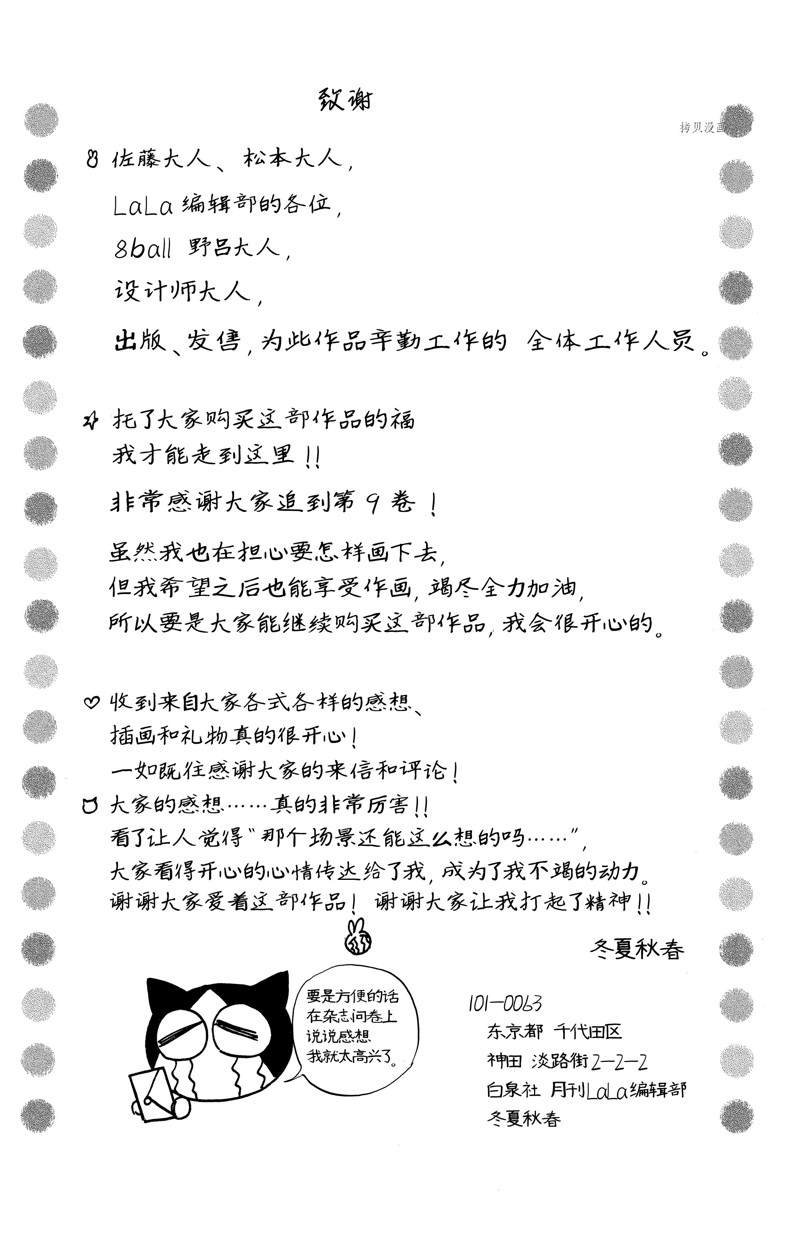 致谢
拷贝漫画
佐藤大人、松本大人,
LaLa 编辑部的各位,
8ball 野吕大人,
设计师大人,
出版、发售,为此作品辛勤工作的 全体工作人员。
托了大家购买这部作品的福
我才能走到这里!!
非常感谢大家追到第9卷!
虽然我也在担心要怎样画下去,
但我希望之后也能享受作画,竭尽全力加油,
所以要是大家能继续购买这部作品,我会很开心的。
收到来自大家各式各样的感想、
插画和礼物真的很开心!
一如既往感谢大家的来信和评论!
大家的感想……真的非常厉害!!
看了让人觉得“那个场景还能这么想的吗……”,
大家看得开心的心情传达给了我,成为了我不竭的动力。
谢谢大家爱着这部作品! 谢谢大家让我打起了精神!!
冬夏秋春
要是方便的话
在杂志问卷上
说说感想
我就太高兴了。
101-0063
东京都 千代田区
神田 淡路街2-2-2
白泉社 月刊LaLa编辑部
冬夏秋春